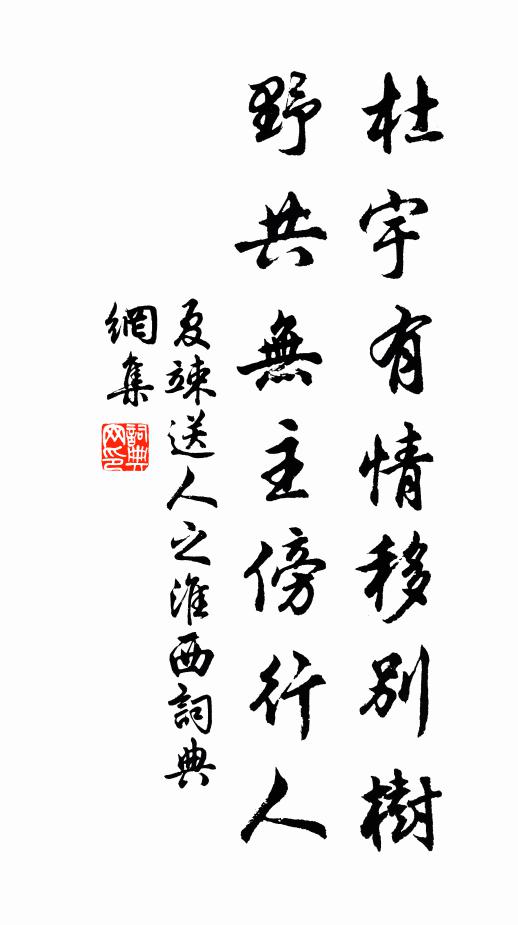 杜宇有情移別樹
野共無主傍行人
夏竦送人之淮西詞典
網集
詞典
网印